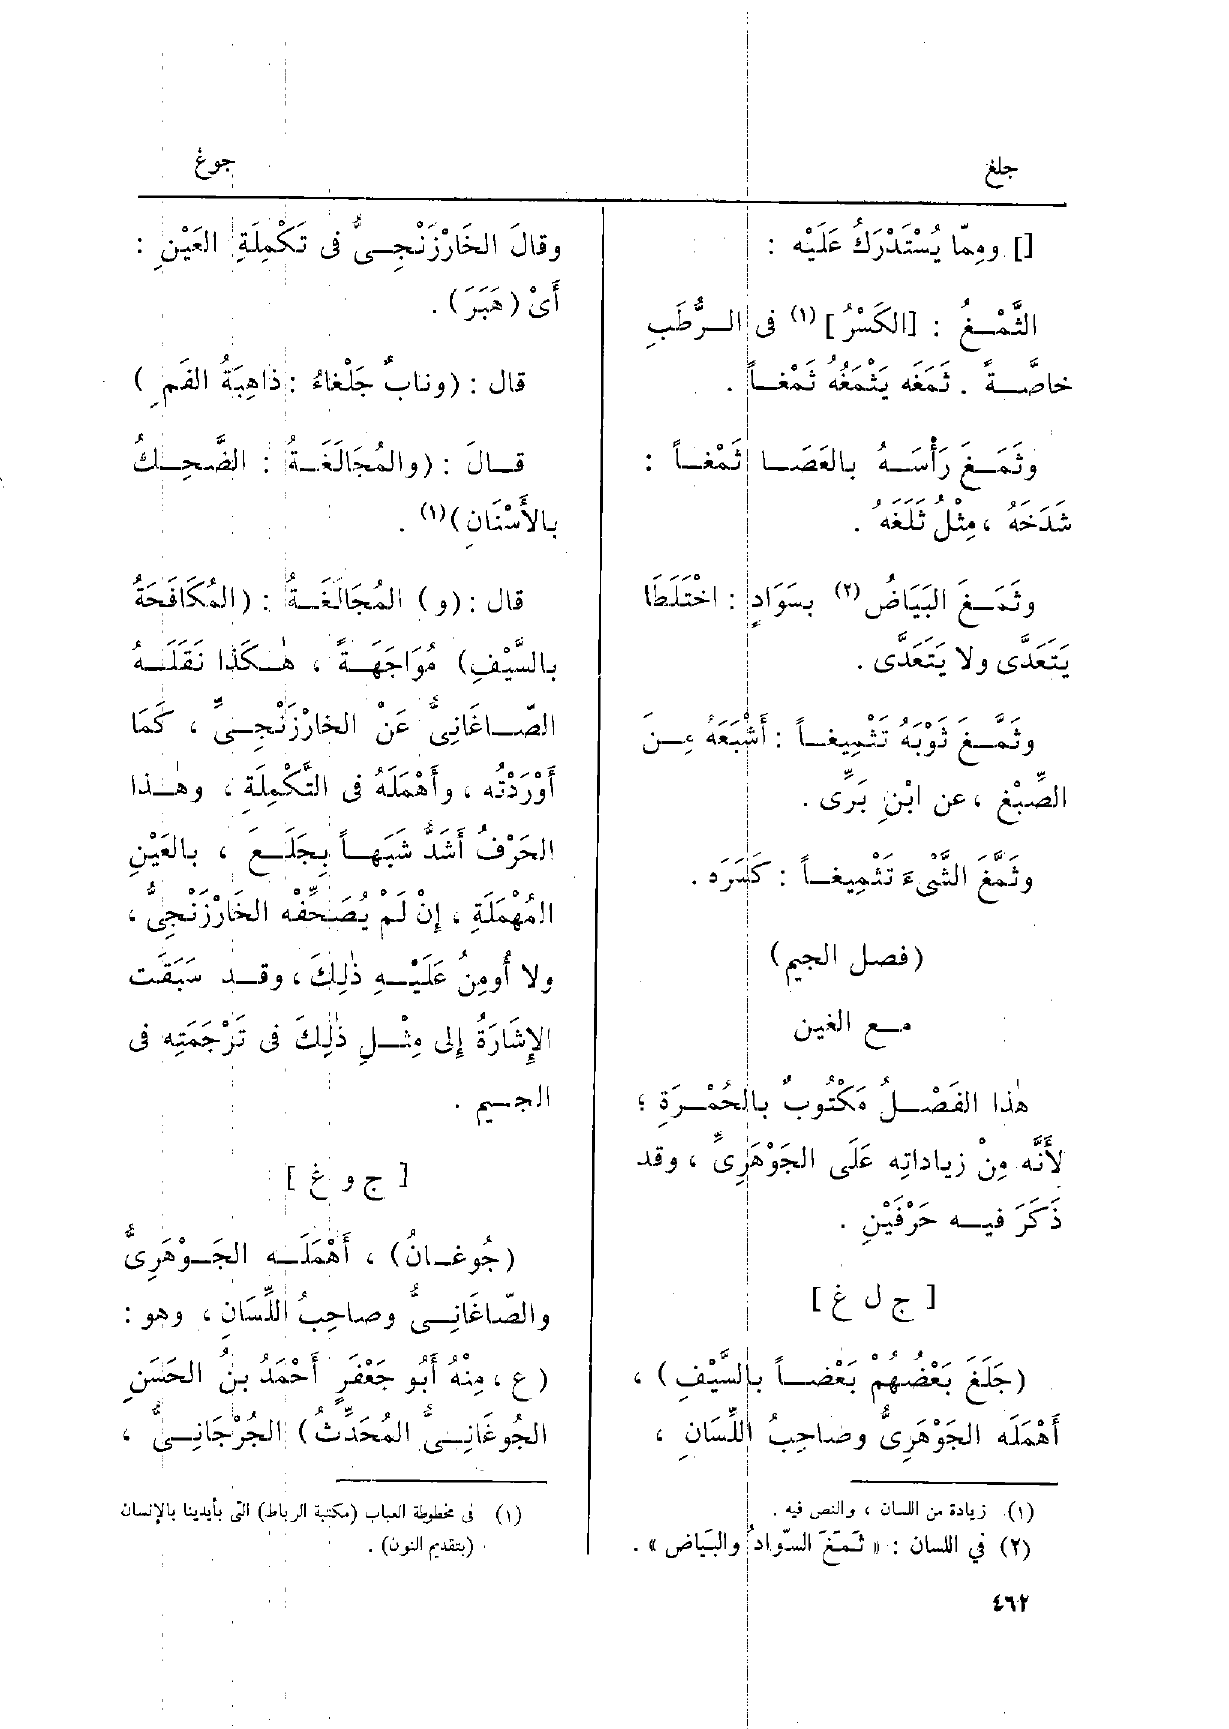 جلغ
جوغ
[] ومِمّا يُسْتَدْرَكُ عَلَيْه :
الثَّمْـغُ : [الكَسْرُ] (١) فى الـرُّطَبِ
خاصَّـةً . ثَمَغَه يَثْمَغُهُ ثَمْغـاً .
وثَمَـغَ رَأْسَـهُ بالعَصَـا ثَمْغـاً :
شَدَخَهُ ، مِثْلُ ثَلَغَهُ .
وثَمَـغَ البَيَاضُ (٢) بِسَوَادٍ : اخْتَلَطَا
يَتَعَدَّى ولا يَتَعَدَّى .
وثَمَّـغَ ثَوْبَهُ تَثْمِيغـاً : أَشْبَعَهُ مِـنَ
الصِّبْغِ ، عن ابْنِ بَرِّى .
وثَمَّغَ الشَّىْءَ تَثْمِيغـاً : كَسَرَه .
(فصل الجيم)
مـع الغين
هٰذا الفَصْـلُ مَكْتُوبٌ بالحُمْـرَةِ ؛
لأَنَّه مِنْ زياداتِه عَلَى الجَوْهَرِىِّ ، وقد
ذَكَرَ فيـه حَرْفَيْنِ .
[ ج ل غ ]
(جَلَغَ بَعْضُهُمْ بَعْضـاً بالسَّيْفِ) ،
أَهْمَلَه الجَوْهَرِىُّ وصاحِبُ اللِّسَانِ ،
(١) زيادة من اللسان ، والنص فيه .
(٢) في اللسان : « ثَمَغَ السّوادُ والبَيَاض » .
وقالَ الخَارْزَنْجِـىُّ فى تَكْمِلَةِ العَيْنِ :
أَىْ (هَبَرَ) .
قال : (ونابٌ جَلْغاءُ : ذاهِبَةُ الفَمِ )
قـالَ : (والمُجَالَغَـةُ : الضَّحِـكُ
بالأَسْنَانِ) (١) .
قال : (و) المُجَالَغَـةُ : (المُكَافَحَةُ
بالسَّيْفِ) مُوَاجَهَـةً ، هٰـكَذا نَقَلَـهُ
الصّـاغَانِىُّ عَنْ الخارْزَنْجِـىِّ ، كَمَا
أَوْرَدْتُه ، وأَهْمَلَهُ فى التَّكْمِلَةِ ، وهٰـذا
الحَرْفُ أَشَدُّ شَبَهـاً بِجَلَـعَ ، بالعَيْنِ
المُهْمَلَةِ ، إِنْ لَمْ يُصَحِّفْه الخَارْزَنْجِىُّ ،
ولا أُومِنُ عَلَيْـهِ ذٰلِكَ ، وقـد سَبَقَت
الإِشَارَةُ إِلى مِثْـلِ ذٰلِكَ فى تَرْجَمَتِه فى
الجـيم .
[ ج و غ ]
(جُوغـانُ) ، أَهْمَلَـه الجَـوْهَرِىُّ
والصّاغَانِـىُّ وصاحِبُ اللِّسَانِ ، وهو :
( ع ، مِنْهُ أَبُو جَعْفَرٍ أَحْمَدُ بنُ الحَسَنِ
الجُوغَانِـىُّ المُحَدِّثُ) الجُرْجَانِـىُّ ،
(١) فى مخطوطة العباب (مكتبة الرباط) التى بأيدينا بالإنسان
(بتقديم النون) .
٤٦٢